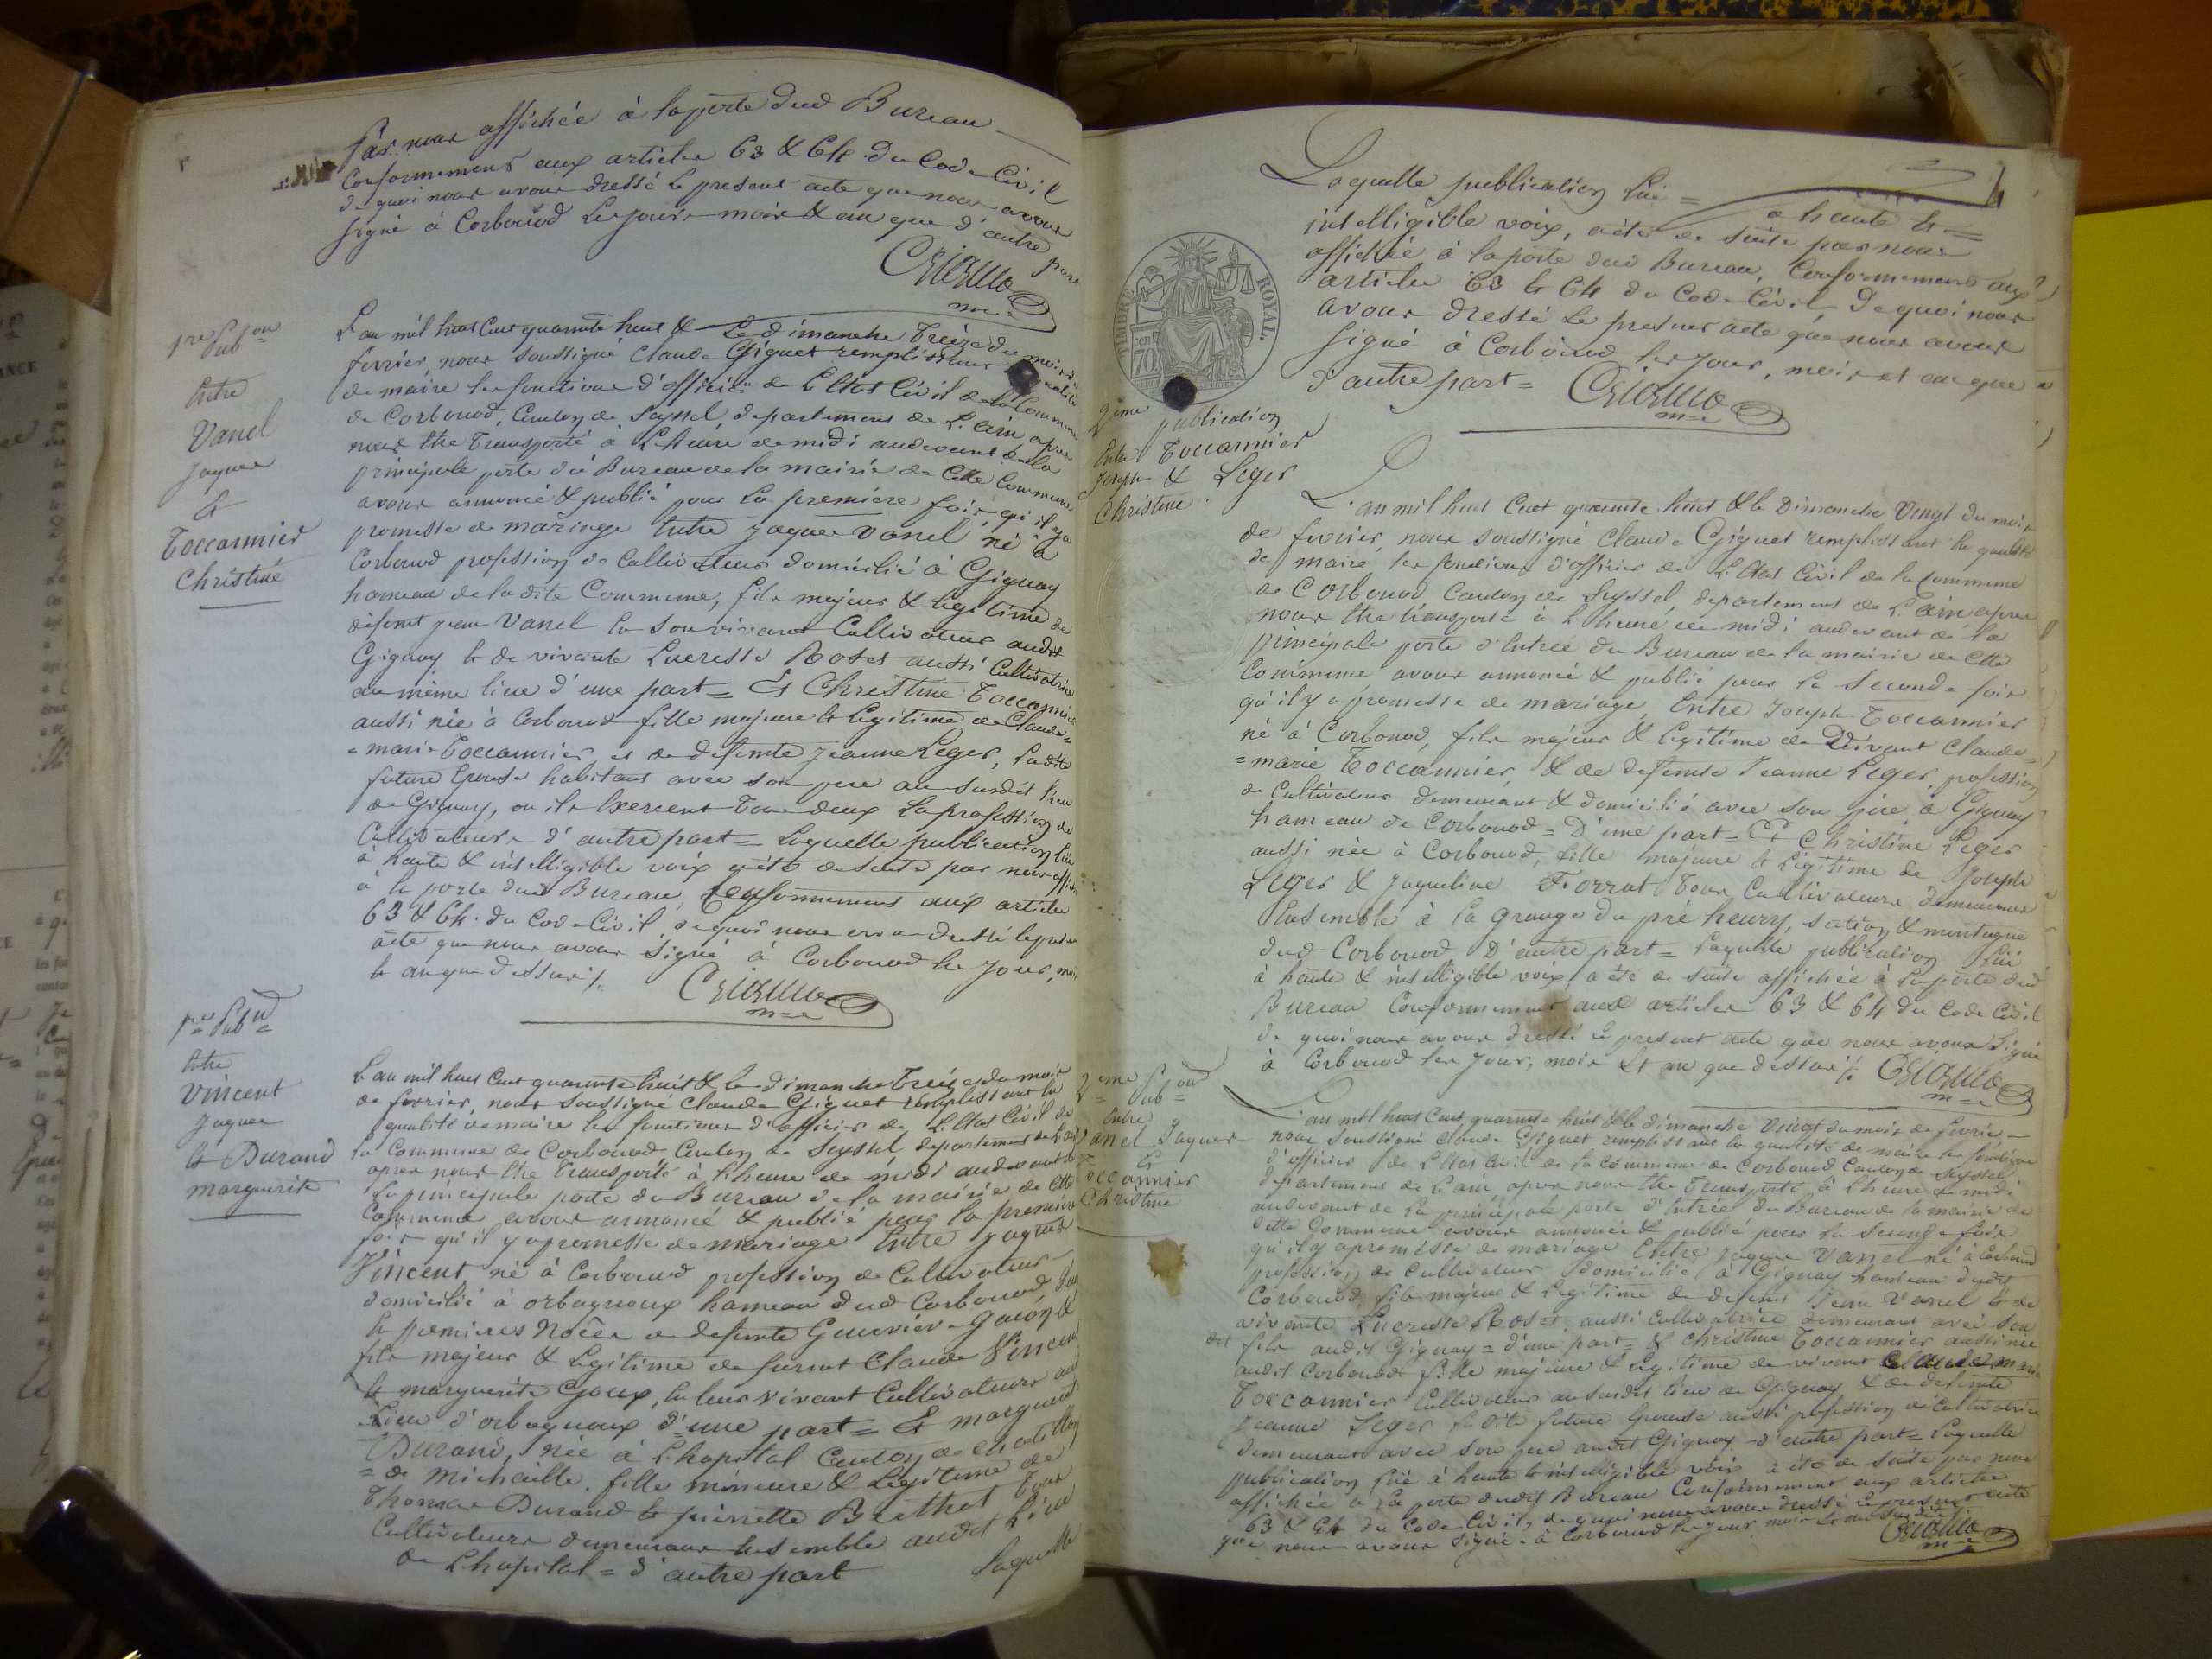 Par nous affichée à la porte dud Bureau
Conformement aux articles 63 & 64 du Code Civil
de quoi nous avons dressé le présent acte que nous avons
signé à Corbonod les jours mois & an que d'autre part
m=e
1re Pub.on
Entre
Vanel
Jaques
&
Toccannier
Christine
L'an mil huit Cent quarante huit & Le dimanche Treize du mois de
fevrier, nous soussigné Claude Giguet remplissant la qualité
de maire les fonctions d'officier de L'Etat Civil de la Commune
de Corbonod, Canton de Seyssel, departement de L'ain, apres
nous être Transporté à L'heure de midi audevant de la
principale porte du Bureau de la mairie de Cette Commune
avons annoncé & publié pour La premiere fois, qu'il y a
promesse de mariage Entre Jaques Vanel né à
Corbonod profession de Cultivateur domicilié à Gignay
hameau de la dite Commune, fils majeur & legitime de
défunt jean Vanel Cultivateur audit
Gignay & de vivante Lucresse Roset aussi Cultivatrice
au même lieu d'une part = Et Christine Toccannier
aussi née à Corbonod fille majeure & legitime de Claude=
=marie Toccannier et de defunte jeanne Leger, Ladite
future Epouse habitant avec son pere au susdit lieu
de Gignay, ou ils Exercent Tous deux La profession de
Cultivateurs d'autre part = Laquelle publication lue
à haute & intelligible voix a été de suite par nous affichée
à la porte dud Bureau, Conformement aux articles
63 & 64 du Code Civil, de quoi nous avons dressé le present
acte que nous avons signé à Corbonod les jour, mois
& an que dessus ./.
m=e
1re Pub.n
Entre
Vincent
Jaques
& Durand
marguerite
L'an mil huit Cent quarante huit & le dimanche Treize du mois
de fevrier, nous soussigné Claude Giguet remplissant la
qualité de maire les fonctions d'officier de L'Etat Civil de
la Commune de Corbonod Canton de Seyssel departement de L'ain
apres nous être Transporté à l'heure de midi audevant de
La principale porte du Bureau de la mairie de Cette
Commune avons annoncé & publié pour la premiere
fois qu'il y a promesse de mariage Entre Jaques
Vincent né à Corbonod profession de Cultivateur
domicilié à orbagnoux hameau dud Corbonod
premieres Noces de defunte &
fils majeur & Legitime de Claude Vincent
& marguerite Goux, Cultivateurs aud
Lieu d'orbagnoux d'une part = Et marguerite
Durand, née à L'hopital Canton de Chatillon
=de Michaille, fille mineure & Legitime de
Thomas Durand & pierrette Brethet Tous
Cultivateurs demeurans Ensemble audit Lieu
de L'hopital = d'autre part
Laquelle
Laquelle publication lue = a haute &
intelligible voix, a été de suite par nous
affichée à la porte dud Bureau, Conformement aux
articles 63 & 64 du Code Civil De quoi nous
avons dressé Le present acte que nous avons
signé à Corbonod les jour, mois et an que
d'autre part =
m=e
TIMBRE ROYAL.
70
2eme publication
Entre Toccannier
Joseph & Leger
Christine.
L'an mil huit Cent quarante huit & le Dimanche Vingt du mois
de fevrier, nous soussigné Claude Giguet remplissant la qualité
de maire les fonctions d'officier de L'Etat Civil de la Commune
de Corbonod Canton de Seyssel, departement de L'ain apres
nous être transporté à L'heure de midi audevant de la
principale porte d'Entrée du Bureau de la mairie de Cette
Commune avons annoncé & publié pour la Seconde fois
qu'il y a promesse de mariage Entre Joseph Toccannier
né à Corbonod, fils majeur & legitime de vivant Claude=
=marie Toccannier, & de defunte Jeanne Leger, profession
de Cultivateur demeurant & domicilié avec son père à Gignay
hameau de Corbonod = D'une part = Et Christine Leger
aussi née à Corbonod, fille majeure & Légitime de Joseph
Leger & Jaqueline Forrat Tous Cultivateurs demeurans
Ensemble à la Grange du pré henry, section & montagne
dud Corbonod D'autre part = Laquelle publication lue
à haute & intelligible voix a été de suite affichée à la porte dud
Bureau Conformement aux articles 63 & 64 du Code Civil
de quoi nous avons dressé le present acte que nous avons signé
à Corbonod les jour, mois et an que dessus ./.
m=e
2eme Pub.on
Entre
Vanel Jaques
&
Toccannier
Christine
L'an mil huit Cent quarante huit & le dimanche Vingt du mois de fevrier
nous soussigné Claude Giguet remplissant la qualité de maire les fonctions
d'officier de L'Etat Civil de la Commune de Corbonod Canton de Seyssel
departement de L'ain apres nous être Transporté à L'heure de midi
audevant de La principale porte d'Entrée du Bureau de la mairie de
Cette Commune avons annoncé & publié pour la seconde fois
qu'il y a promesse de mariage Entre Jaques Vanel né à Corbonod
profession de Cultivateur domicilié à Gignay hameau dudit
Corbonod, fils majeur & Legitime de defunt Jean Vanel & de
vivante Lucresse Roset, aussi Cultivatrice demeurant avec son
dit fils audit Gignay = d'une part = & Christine Toccannier aussi née
audit Corbonod fille majeure & Legitime de vivant Claude marie
Toccannier Cultivateur au susdit lieu de Gignay & de defunte
Jeanne Leger ladite future Epouse aussi profession de Cultivatrice
demeurant avec son pere audit Gignay = d'autre part = Laquelle
publication lue à haute & intelligible voix a été de suite par nous
affichée à la porte dudit Bureau Conformement aux articles
63 & 64 du Code Civil, de quoi nous avons dressé le present acte
que nous avons signé à Corbonod les jour mois & an
m=e